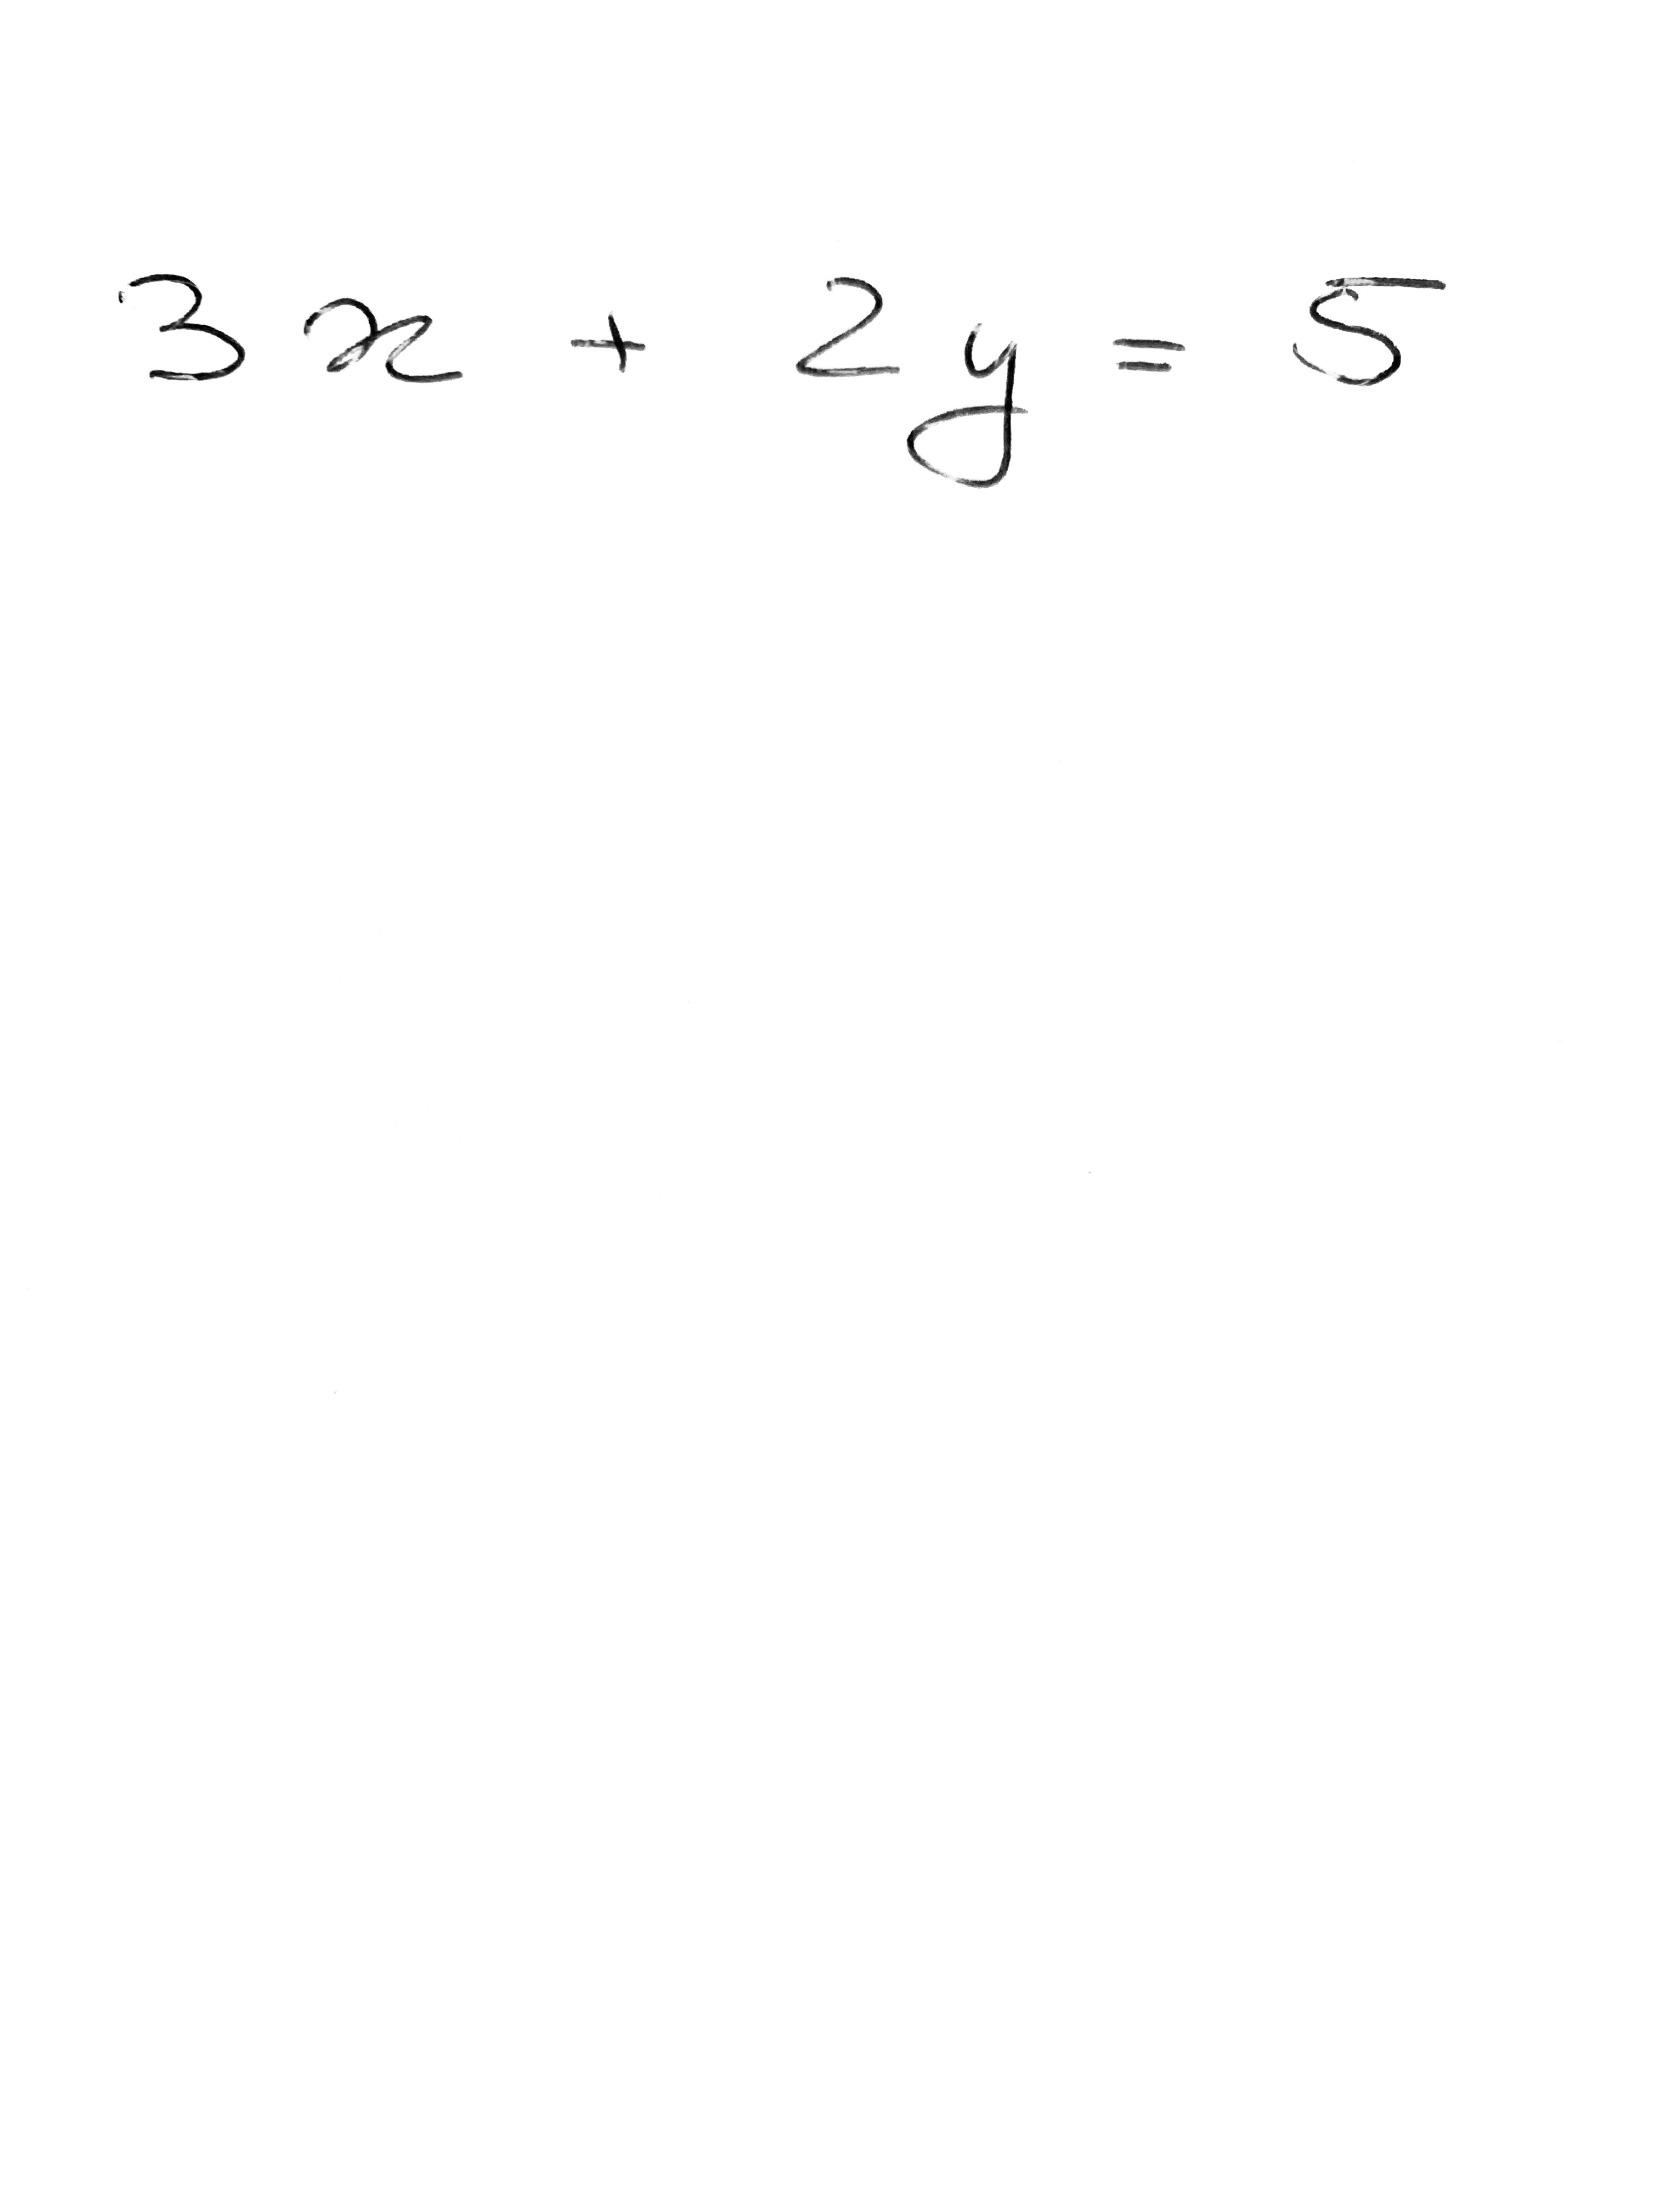 3x + 2y = 5